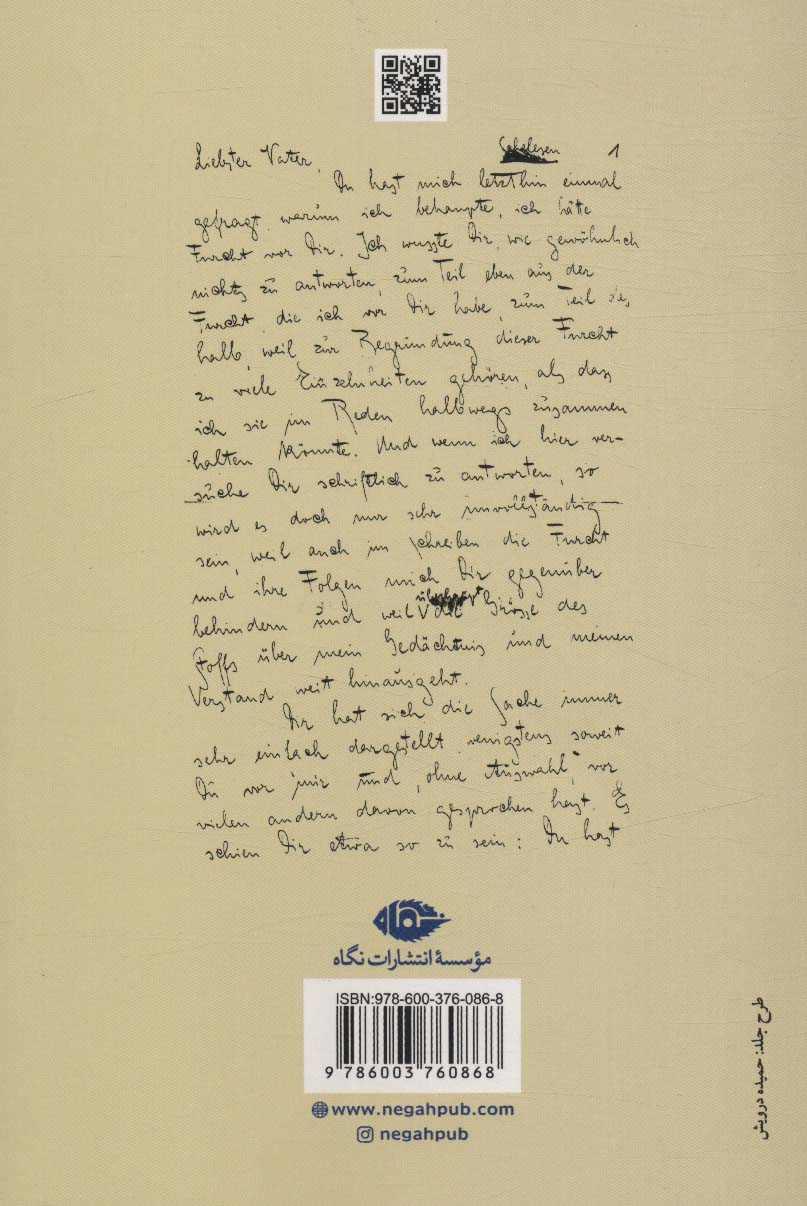 Schelesen 1
Liebster Vater,
Du hast mich letzthin einmal
gefragt, warum ich behaupte, ich hätte
Furcht vor Dir. Ich wusste Dir, wie gewöhnlich
nichts zu antworten, zum Teil eben aus der
Furcht, die ich vor Dir habe, zum Teil des
halb, weil zur Begründung dieser Furcht
zu viele Einzelheiten gehören, als dass
ich sie im Reden halbwegs zusammen
halten könnte. Und wenn ich hier ver-
suche Dir schriftlich zu antworten, so
wird es doch nur sehr unvollständig
sein, weil auch im Schreiben die Furcht
und ihre Folgen mich Dir gegenüber
behindern und weil überhaupt die Grösse des
Stoffs über mein Gedächtnis und meinen
Verstand weit hinausgeht.
Dir hat sich die Sache immer
sehr einfach dargestellt, wenigstens soweit
Du vor mir und, ohne Auswahl, vor
vielen andern davon gesprochen hast. Es
schien Dir etwa so zu sein: Du hast
مؤسسهٔ انتشارات نگاه
ISBN:978-600-376-086-8
9 786003 760868
www.negahpub.com
negahpub
طرح جلد: حمیده درویش